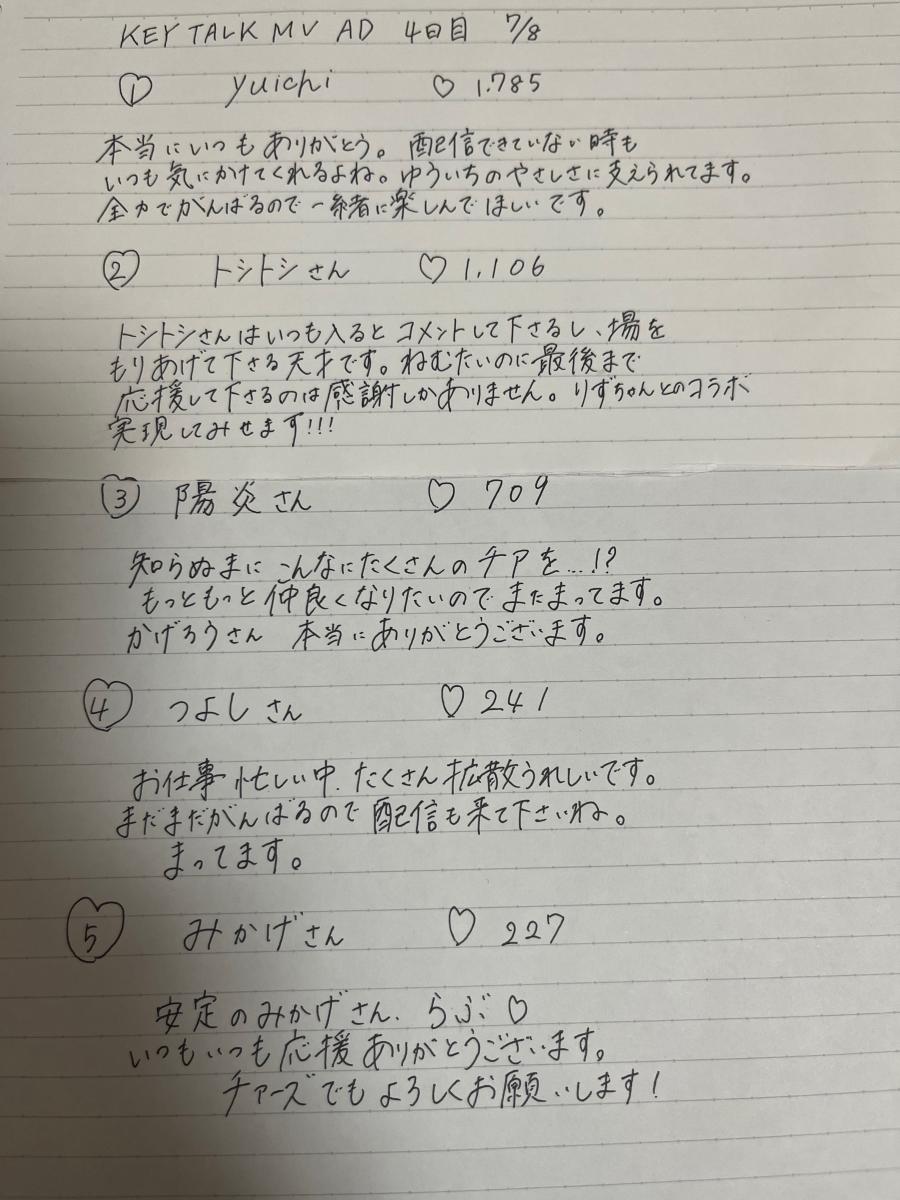 KEY TALK MV AD 4日目 7/8
① yuichi ♡ 1.785
本当にいつもありがとう。配信できていない時も
いつも気にかけてくれるよね。ゆういちのやさしさに支えられてます。
全力でがんばるので一緒に楽しんでほしいです。
② トシトシさん ♡ 1.106
トシトシさんはいつも入るとコメントして下さるし、場を
もりあげて下さる天才です。ねむたいのに最後まで
応援して下さるのは感謝しかありません。りずちゃんとのコラボ
実現してみせます!!!
③ 陽炎さん ♡ 709
知らぬまにこんなにたくさんのチアを...!?
もっともっと仲良くなりたいのでまたまってます。
かげろうさん 本当にありがとうございます。
④ つよしさん ♡ 241
お仕事忙しい中、たくさん拡散うれしいです。
まだまだがんばるので配信も来て下さいね。
まってます。
⑤ みかげさん ♡ 227
安定のみかげさん、らぶ♡
いつもいつも応援ありがとうございます。
チアーズでもよろしくお願いします!